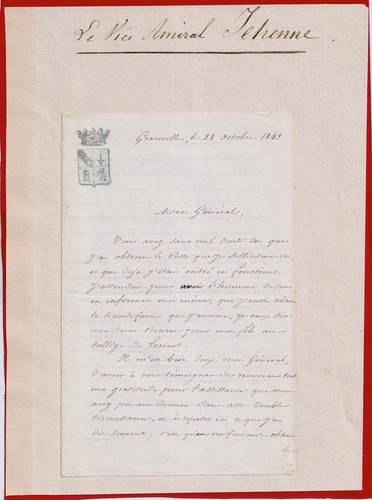 Le Vice Amiral Jehenne.
Granville, le 28 octobre 1843
Mon Général,
Vous avez sans nul doute su que
j'ai obtenu le Poste que je sollicitais ici
et que déjà j'étais entré en fonctions.
J'attendais pour avoir l'honneur de vous
en informer moi même, que j'eusse obtenu
la seconde faveur que j'enviais, je veux dire
une demi Bourse pour mon fils au
Collège de Lorient.
Il m'est bien doux, mon Général,
d'avoir à vous témoigner de nouveau toute
ma gratitude pour l'assistance que vous
avez pu me donner dans cette double
circonstance, et à répéter ici ce que j'ai
dit souvent; c'est qu'en me faisant obtenir
le